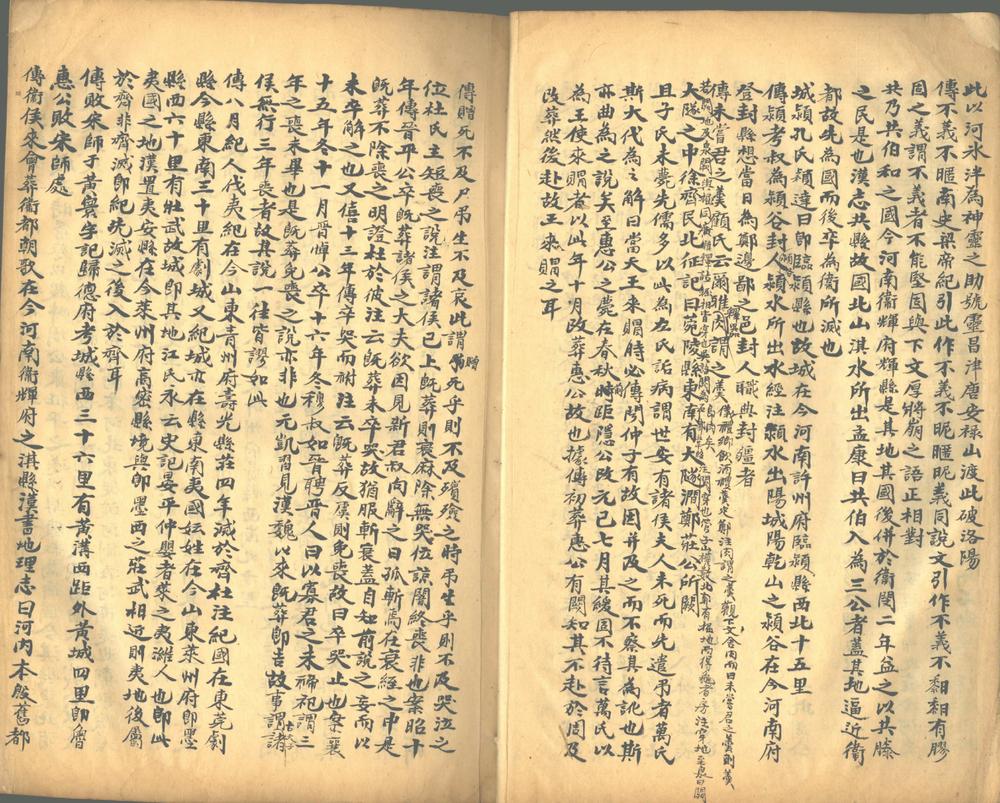 此以河水泮為神靈之助號靈昌津唐安祿山渡此破洛陽
傳不義不暱南史梁帝紀引此作不義不昵暱昵義同說文引作不義不䵒䵒有膠
固之義謂不義者不能堅固與下文厚將崩之語正相對
共乃共伯和之國今河南衛輝府輝縣是其地其國後併於衛閔二年益之以共滕
之民是也漢志共縣故國北山淇水所出孟康曰共伯入為三公者蓋其地逼近衛
都故先為國而後卒為衛所滅也
城潁孔氏穎達曰即臨潁縣也故城在今河南許州府臨潁縣西北十五里
傳潁考叔為潁谷封人潁水所出水經注潁水出陽城陽乾山之潁谷在今河南府
登封縣想當日為鄭邊鄙之邑封人職典封疆者
傳未嘗君之羹顧氏云爾雅釋器肉謂之羹儀禮鄉飲酒禮羹定鄭注肉謂之羹觀下文舍肉而曰未嘗君之羹則羹
大隧之中徐齊民北征記曰苑陵縣東南有大隧澗鄭莊公所闕
且子氏未薨先儒多以此為左氏詬病謂世安有諸侯夫人未死而先遣弔者萬氏
斯大代為之解曰當天王來賵時必傳聞仲子有故因并及之而不察其為訛也斯
亦曲為之說矣至惠公之薨在春秋前時距隱公改元已七月其緩固不待言萬氏以
為王使來賵者以此年十月改葬惠公故也據傳初葬惠公有闕知其不赴於周及
改葬然後赴故王來賵之耳
傳贈死不及尸弔生不及哀此謂贈死乎則不及殯殮之時弔生乎則不及哭泣之
位杜氏主短喪之說注謂諸侯已上既葬則衰麻除無哭位諒闇終喪非也案昭十
年傳晉平公卒既葬諸侯之大夫欲因見新君叔向辭之曰孤斬焉在衰絰之中是
既葬不除喪之明證杜於彼注云既葬未卒哭故猶服斬衰蓋自知前說之妄而以
未卒解之也又僖三十三年傳卒哭而祔注云既葬反虞則免喪故曰卒哭止也案襄
十五年冬十一月晉悼公卒十六年冬穆叔如晉聘晉人曰以寡君之未禘祀謂三
年之喪未畢也是既葬免喪之說亦非也元凱習見漢魏以來既葬即吉故事謂諸
侯無行三年喪者故其說一往皆謬如此
傳八月紀人伐夷紀在今山東青州府壽光縣莊四年滅於齊杜注紀國在東莞劇
縣今縣東南三十里有劇城又紀城亦在縣東南夷國妘姓在今山東萊州府即墨
縣西六十里有壯武故城即其地江氏永云史記晏平仲嬰者萊之夷濰人也即此
夷國之地漢置夷安縣在今萊州府高密縣境與即墨西之壯武相近則夷地後屬
於齊非齊滅即紀先滅之後入於齊耳
傳敗宋師于黃寰宇記歸德府考城縣西三十六里有黃溝西距外黃城四里即魯
惠公敗宋師處
傳衛侯來會葬衛都朝歌在今河南衛輝府之淇縣漢書地理志曰河內本殷舊都